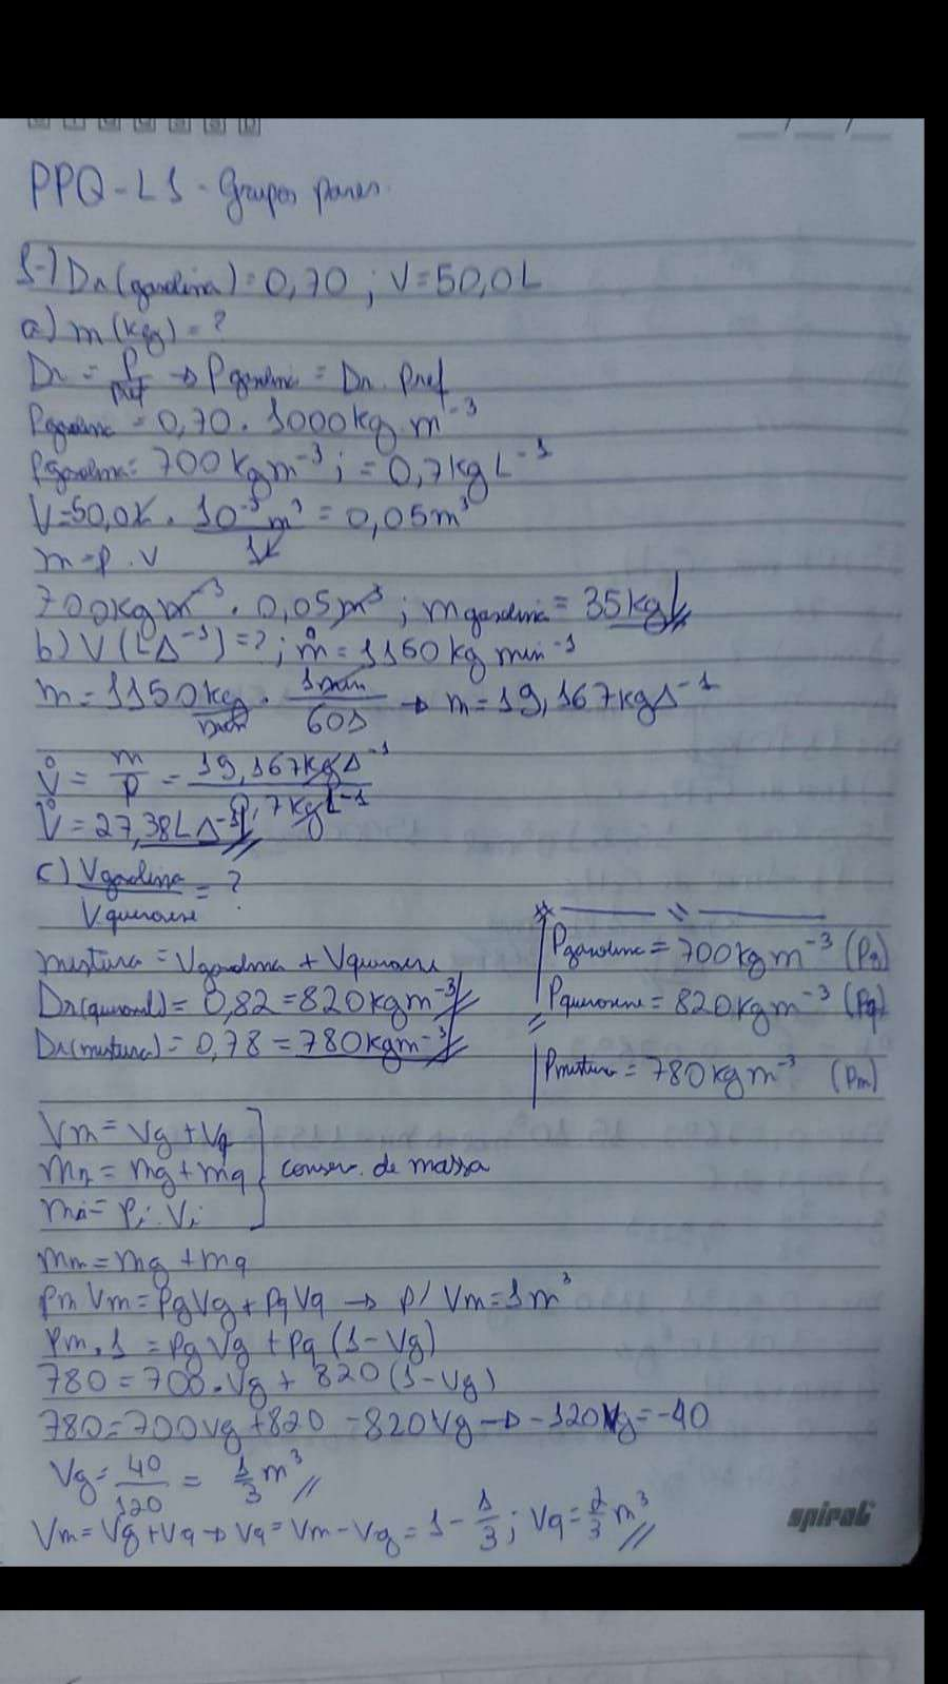 PPQ-L1 - Grupos pares.
1-) Dr(gasolina) = 0,70 ; V=50,0L
a) m(kg) = ?
Dr = ρ/ρref → ρgasolina = Dr. ρref
ρgasolina = 0,70 . 1000kg m⁻³
ρgasolina = 700kgm⁻³ ; = 0,7kgL⁻¹
V=50,0L . 10⁻³m³/1L = 0,05m³
m=ρ.V
700kgm⁻³ . 0,05m³ ; mgasolina = 35kg
b) V(Ls⁻¹) = ? ; ṁ = 1150kg min⁻¹
m = 1150kg/min . 1min/60s → m = 19,167kgs⁻¹
V̇ = m/ρ = 19,167kgs⁻¹/0,7kgL⁻¹
V̇ = 27,38Ls⁻¹
c) Vgasolina/Vquerosene = ?
mistura = Vgasolina + Vquerosene
Dr(querosene) = 0,82 = 820kgm⁻³
Dr(mistura) = 0,78 = 780kgm⁻³
ρgasolina = 700kgm⁻³ (ρg)
ρquerosene = 820kgm⁻³ (ρq)
ρmistura = 780kgm⁻³ (ρm)
Vm = Vg + Vq
mm = mg + mq } conserv. de massa
mi = ρi.Vi
mm = mg + mq
ρmVm = ρgVg + ρqVq → p/ Vm=1m³
ρm.1 = ρgVg + ρq(1-Vg)
780 = 700.Vg + 820(1-Vg)
780 = 700Vg + 820 - 820Vg → -120Vg = -40
Vg = 40/120 = 1/3 m³
Vm = Vg + Vq → Vq = Vm - Vg = 1 - 1/3 ; Vq = 2/3 m³
spiral